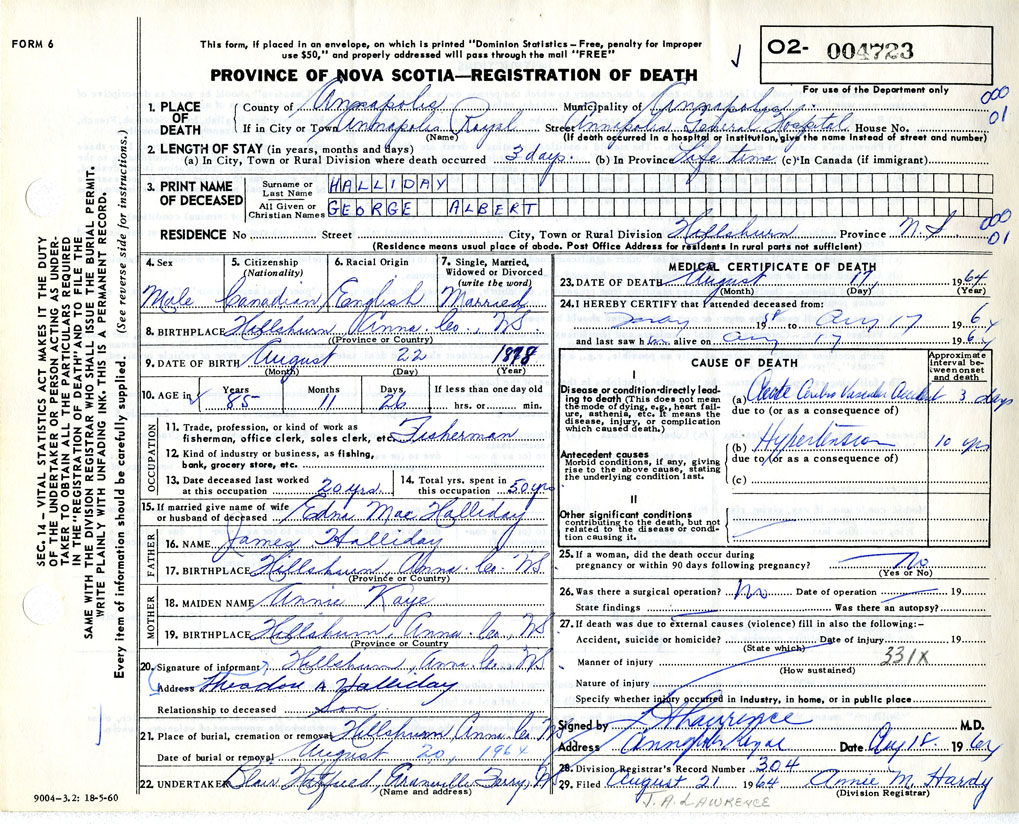 FORM 6
This form, if placed in an envelope, on which is printed "Dominion Statistics – Free, penalty for improper
use $50," and properly addressed will pass through the mail "FREE"
02- 004723
For use of the Department only
PROVINCE OF NOVA SCOTIA—REGISTRATION OF DEATH
SEC. 14 – VITAL STATISTICS ACT MAKES IT THE DUTY
OF THE UNDERTAKER OR PERSON ACTING AS UNDER-
TAKER TO OBTAIN ALL THE PARTICULARS REQUIRED
IN THE "REGISTRATION OF DEATH" AND TO FILE THE
SAME WITH THE DIVISION REGISTRAR WHO SHALL ISSUE THE BURIAL PERMIT.
WRITE PLAINLY WITH UNFADING INK. THIS IS A PERMANENT RECORD.
Every item of information should be carefully supplied. (See reverse side for instructions.)
1. PLACE OF DEATH County of Annapolis Municipality of Annapolis 000
If in City or Town Annapolis Royal (Name) Street Annapolis General Hospital House No. 01
(If death occurred in a hospital or institution, give the name instead of street and number)
2. LENGTH OF STAY (in years, months and days)
(a) In City, Town or Rural Division where death occurred 3 days. (b) In Province Life time (c) In Canada (if immigrant)
3. PRINT NAME OF DECEASED Surname or Last Name HALLIDAY
All Given or Christian Names GEORGE ALBERT
RESIDENCE No. Street City, Town or Rural Division Hillsburn Province N.S. 000 01
(Residence means usual place of abode. Post Office Address for residents in rural parts not sufficient)
4. Sex Male
5. Citizenship (Nationality) Canadian
6. Racial Origin English
7. Single, Married, Widowed or Divorced (write the word) Married
8. BIRTHPLACE Hillsburn Anna. Co., NS
(Province or Country)
9. DATE OF BIRTH August 22 1878
(Month) (Day) (Year)
10. AGE in Years 85 Months 11 Days 26 If less than one day old hrs. or min.
OCCUPATION
11. Trade, profession, or kind of work as fisherman, office clerk, sales clerk, etc. Fisherman
12. Kind of industry or business, as fishing, bank, grocery store, etc.
13. Date deceased last worked at this occupation 20 yrs
14. Total yrs. spent in this occupation 50 yrs
15. If married give name of wife or husband of deceased Edna Mae Halliday
FATHER
16. NAME James Halliday
17. BIRTHPLACE Hillsburn, Anna. Co. NS
(Province or Country)
MOTHER
18. MAIDEN NAME Annie Kaye
19. BIRTHPLACE Hillsburn, Anna. Co., NS
(Province or Country)
20. Signature of informant Hillsburn, Anna. Co. NS
Address Theadore A Halliday
Relationship to deceased Son
21. Place of burial, cremation or removal Hillsburn, Anna. Co. NS
Date of burial or removal August 20, 1964
22. UNDERTAKER Granville Ferry, NS
(Name and address)
9004–3.2: 18-5-60
MEDICAL CERTIFICATE OF DEATH
23. DATE OF DEATH August 17, 1964
(Month) (Day) (Year)
24. I HEREBY CERTIFY that I attended deceased from:
May 19 to Aug 17 1964
and last saw h alive on Aug 17 1964
CAUSE OF DEATH
Approximate interval between onset and death
I
Disease or condition directly leading to death (This does not mean the mode of dying, e.g., heart failure, asthenia, etc. It means the disease, injury, or complication which caused death.)
(a) Acute Cerebro Vascular Accident 3 days
due to (or as a consequence of)
Antecedent causes
Morbid conditions, if any, giving rise to the above cause, stating the underlying condition last.
(b) Hypertension 10 yrs
due to (or as a consequence of)
(c)
II
Other significant conditions
contributing to the death, but not related to the disease or condition causing it.
25. If a woman, did the death occur during pregnancy or within 90 days following pregnancy? No
(Yes or No)
26. Was there a surgical operation? No Date of operation 19
State findings Was there an autopsy?
27. If death was due to external causes (violence) fill in also the following:–
Accident, suicide or homicide? (State which) Date of injury 19
Manner of injury (How sustained) 331X
Nature of injury
Specify whether injury occurred in industry, in home, or in public place
Signed by Lawrence M.D.
Address Annapolis Royal Date Aug 18. 1964
28. Division Registrar's Record Number 304
29. Filed August 21 1964 Annie M. Hardy
(Division Registrar)
J. A. LAWRENCE